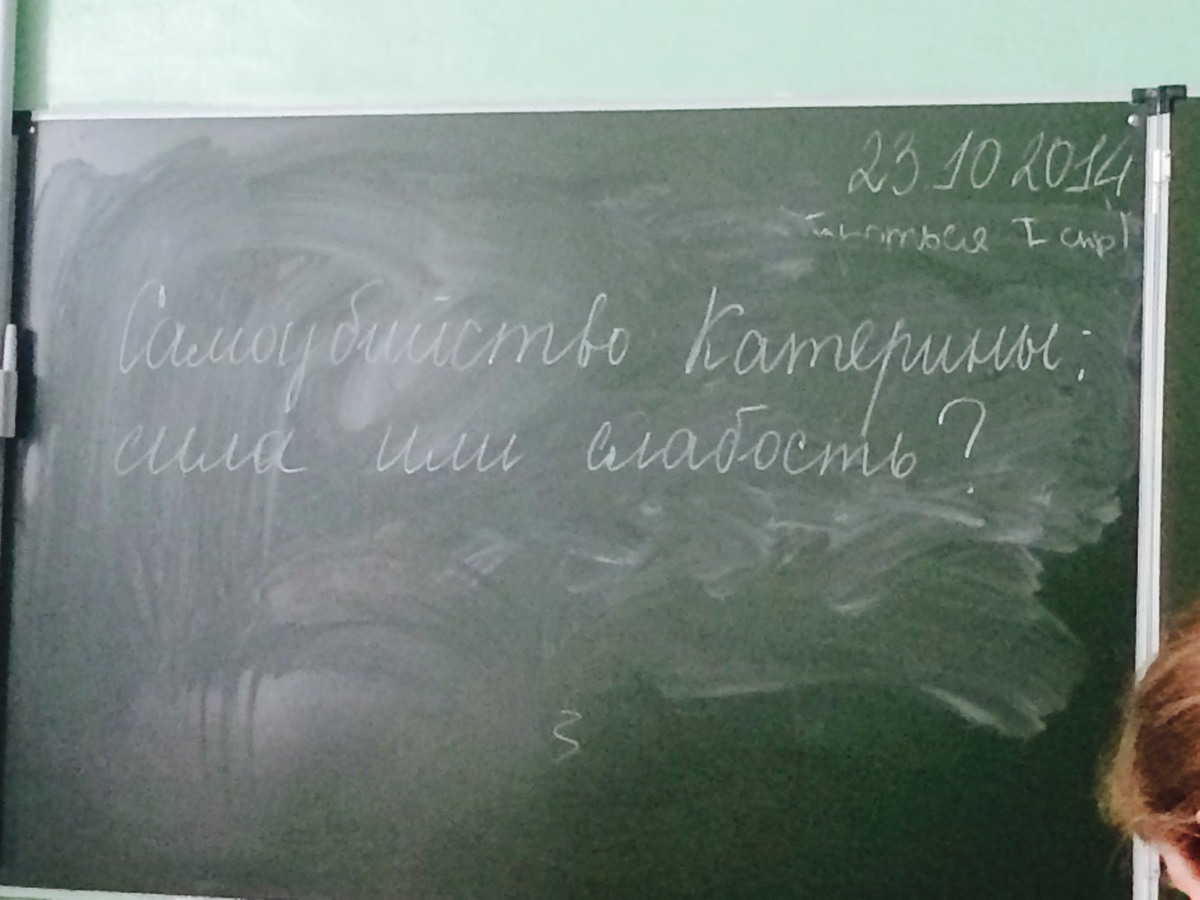 23.10 2014
Самоубийство Катерины:
сила или слабость?
З